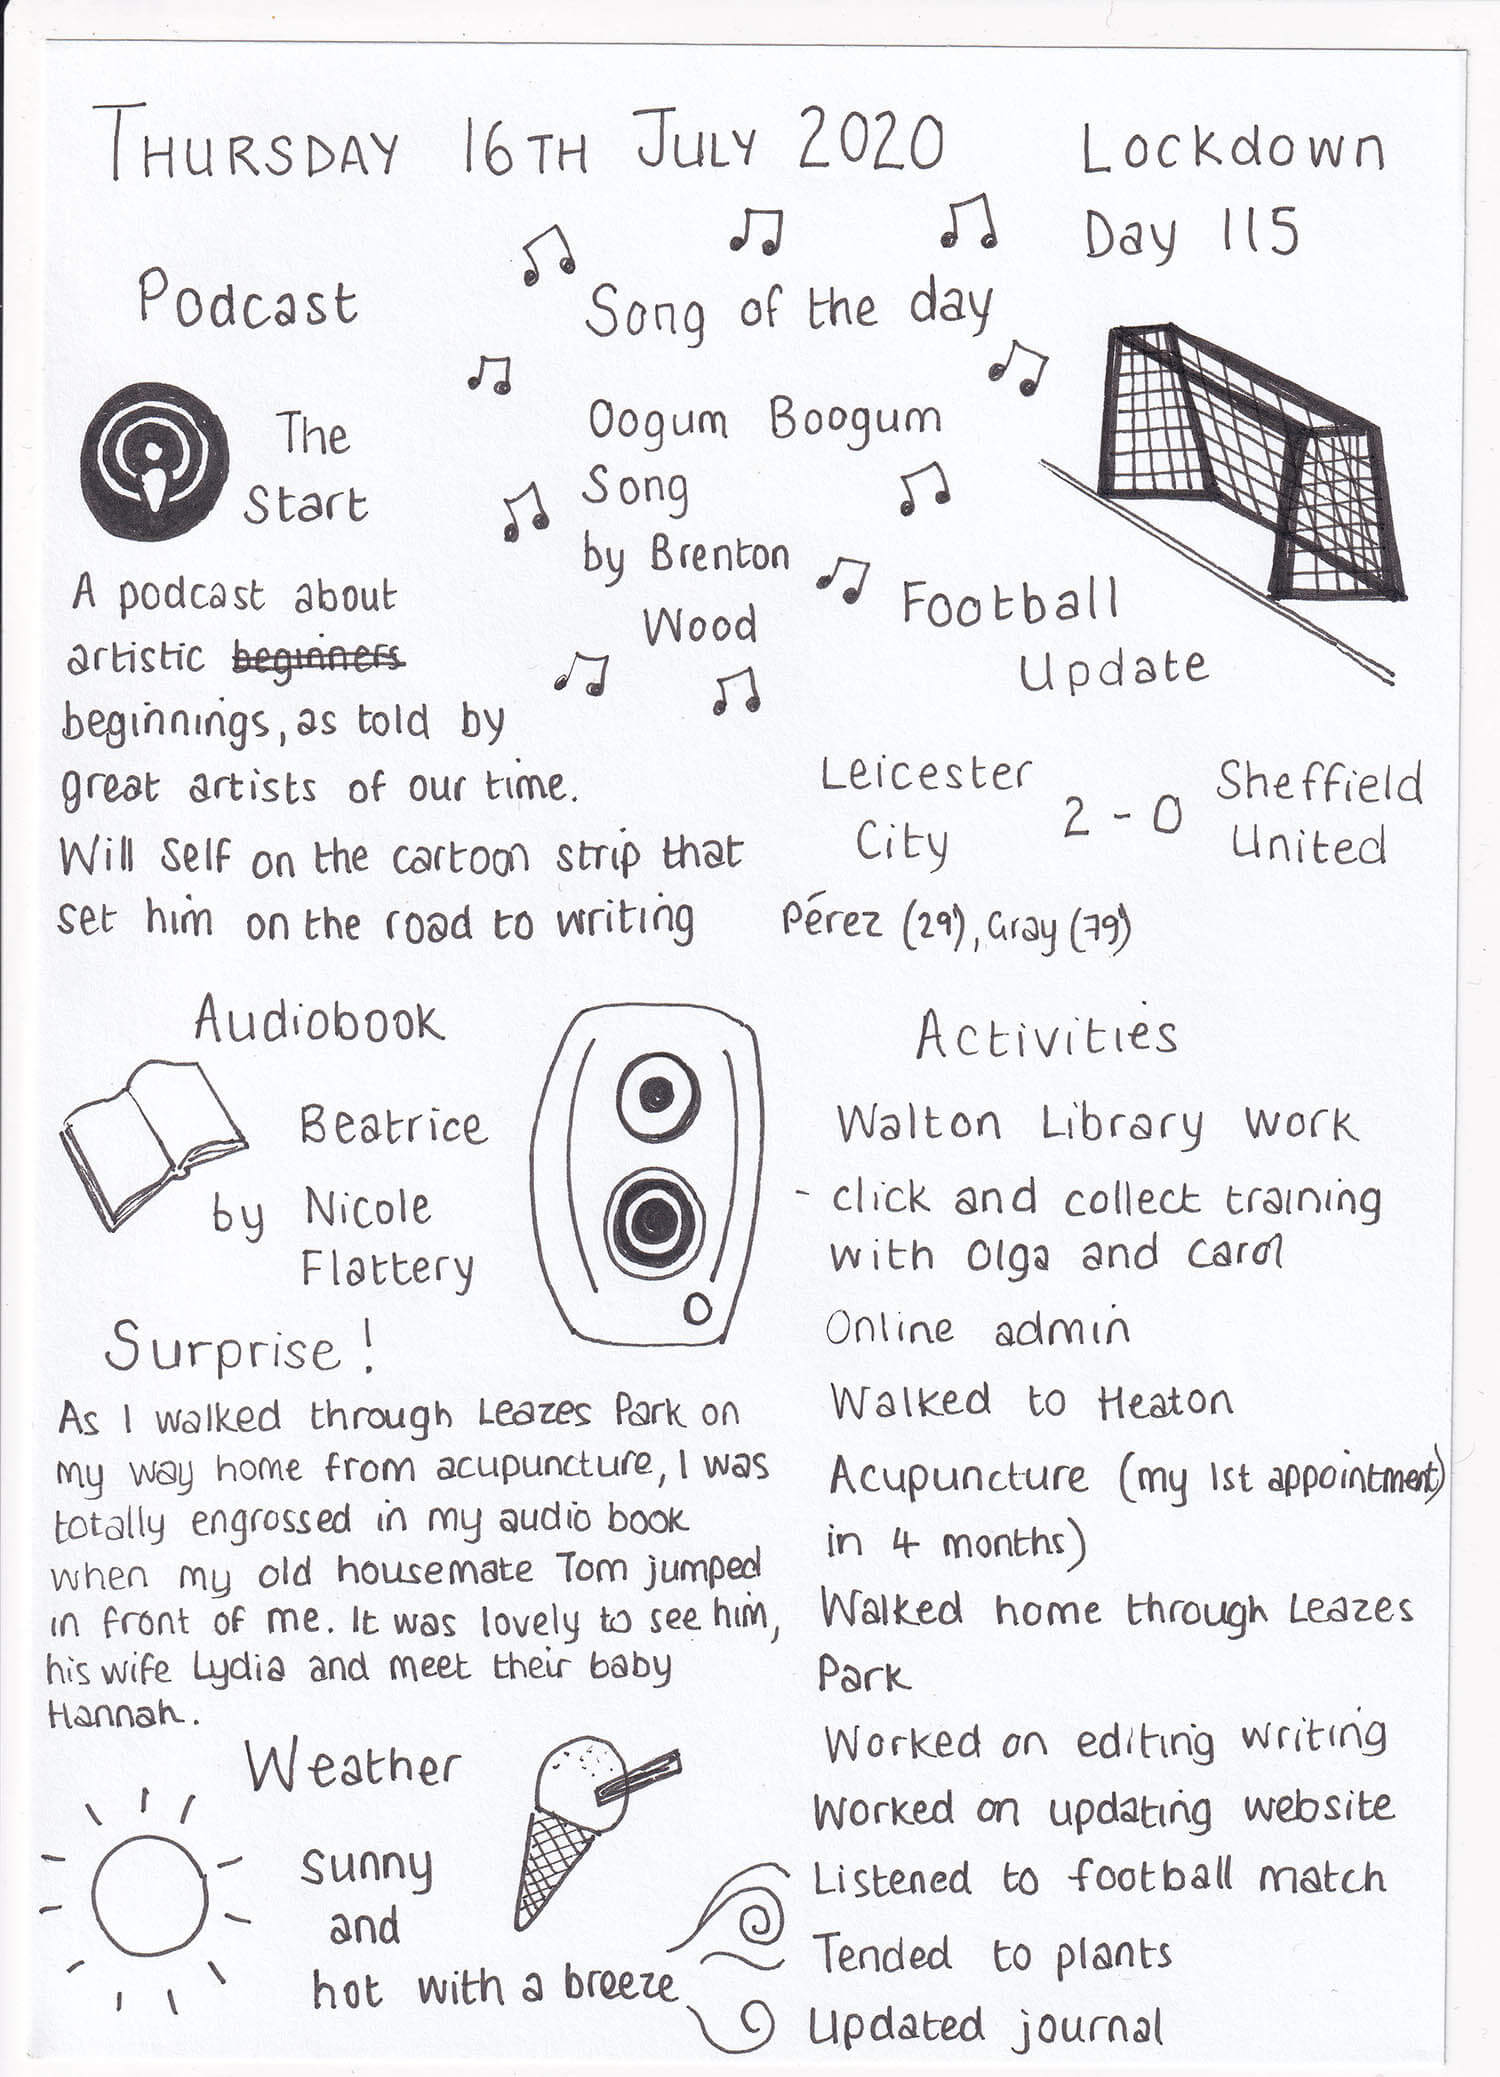 THURSDAY 16TH JULY 2020
Lockdown
Day 115
Podcast
The
Start
A podcast about
artistic beginners
beginnings, as told by
great artists of our time.
Will Self on the cartoon strip that
set him on the road to writing
Song of the day
Oogum Boogum
Song
by Brenton
Wood
Football
Update
Leicester
City
2 - 0
Sheffield
United
Pérez (29'), Gray (79')
Audiobook
Beatrice
by Nicole
Flattery
Surprise!
As I walked through Leazes Park on
my way home from acupuncture, I was
totally engrossed in my audio book
when my old housemate Tom jumped
in front of me. It was lovely to see him,
his wife Lydia and meet their baby
Hannah.
Weather
sunny
and
hot with a breeze
Activities
Walton Library work
- click and collect training
with Olga and Carol
Online admin
Walked to Heaton
Acupuncture (my 1st appointment)
in 4 months)
Walked home through Leazes
Park
Worked on editing writing
Worked on updating website
Listened to football match
Tended to plants
Updated journal